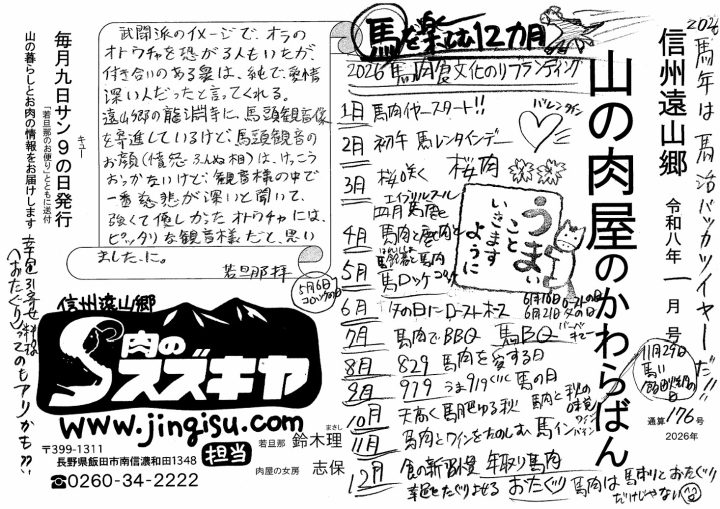 2026 馬年は馬治バッカツイヤーだ!!
信州遠山郷
令和八年 一月号
山の肉屋のかわらばん
通算176号
2026年
馬を楽しむ12ヵ月
2026 馬肉食文化のリブランディング
1月 馬肉イヤースタート!!
2月 初午 馬レンタインデー
バレンタイン
3月 桜咲く 桜肉
エイプリルフール
四月馬鹿
4月 馬肉と鹿肉と
5月 馬ロッケ コロッケ
5月6日
コロッケの日
6月 夕の日にローストホース
6月21日
7月 馬肉でBBQ 馬BQ
バーベキュー
8月 829 馬肉を愛する日
9月 919 馬の日
10月 天高く馬肥ゆる秋 馬肉と秋の味覚
11月 馬肉とワインをたのしむ 馬イン
ワイン
11月29日
馬い
12月 食の新習慣 年取り馬肉
幸福をたぐりよせる おたぐり
馬肉は馬刺しとおたぐり
だけじゃない
うまい
こと
いきます
ように
武闘派のイメージで、オラの
オトウチャを恐がる人もいたが、
付き合いのある衆は、純で愛情
深い人だったと言ってくれる。
遠山郷の龍淵寺に、馬頭観音像
を寄進しているけど、馬頭観音の
お顔(憤怒 ふんぬ相)は、けっこう
おっかないけど、観音様の中で
一番慈悲が深いと聞いて、
強くて優しかったオトウチャには、
ピッタリな観音様だと、思い
ました、に。
若旦那拝
毎月九日サン9の日発行
キュー
「若旦那のお便り」とともに送付
山の暮らしとお肉の情報をお届けします
幸福を引寄せ料理
(おたぐり)ってのもアリかも??
信州遠山郷
肉の
スズキヤ
www.jingisu.com
〒399-1311
長野県飯田市南信濃和田1348
☎0260-34-2222
担当
若旦那 鈴木理
まさし
肉屋の女房 志保